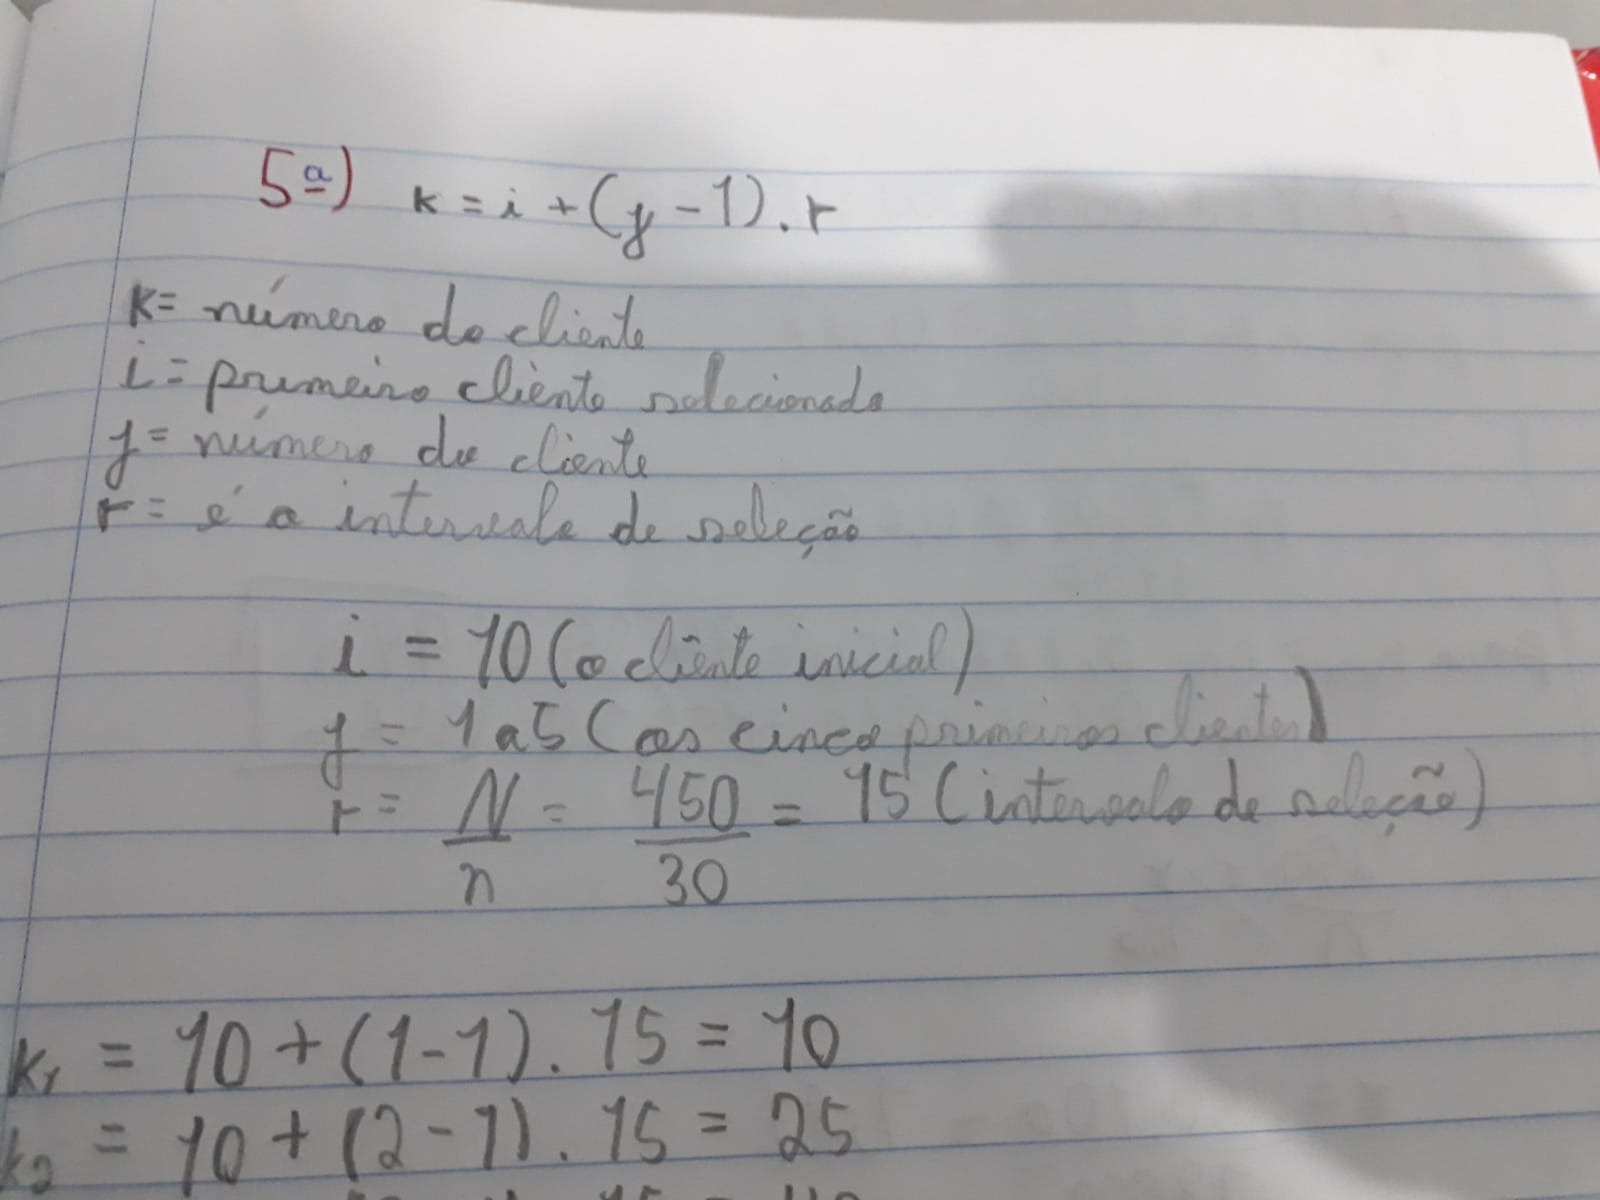 5ª) k = i + (y - 1) . r
k = número do cliente
i = primeiro cliente selecionado
y = número do cliente
r = é o intervalo de seleção
i = 10 (o cliente inicial)
y = 1 a 5 (os cinco primeiros clientes)
r = N/n = 450/30 = 15 (intervalo de seleção)
k1 = 10 + (1 - 1) . 15 = 10
k2 = 10 + (2 - 1) . 15 = 25